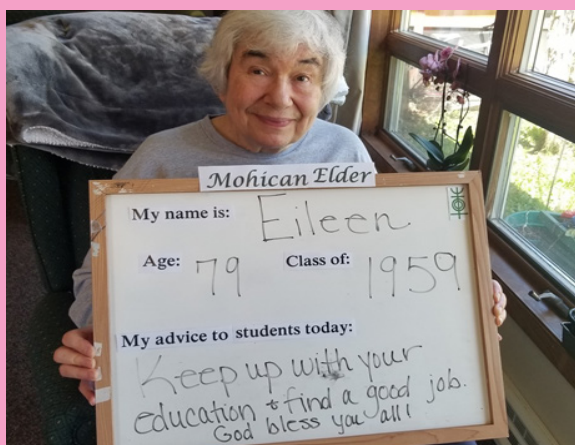 Mohican Elder
My name is: Eileen
Age: 79 Class of: 1959
My advice to students today:
Keep up with your
education & find a good job.
God bless you all!